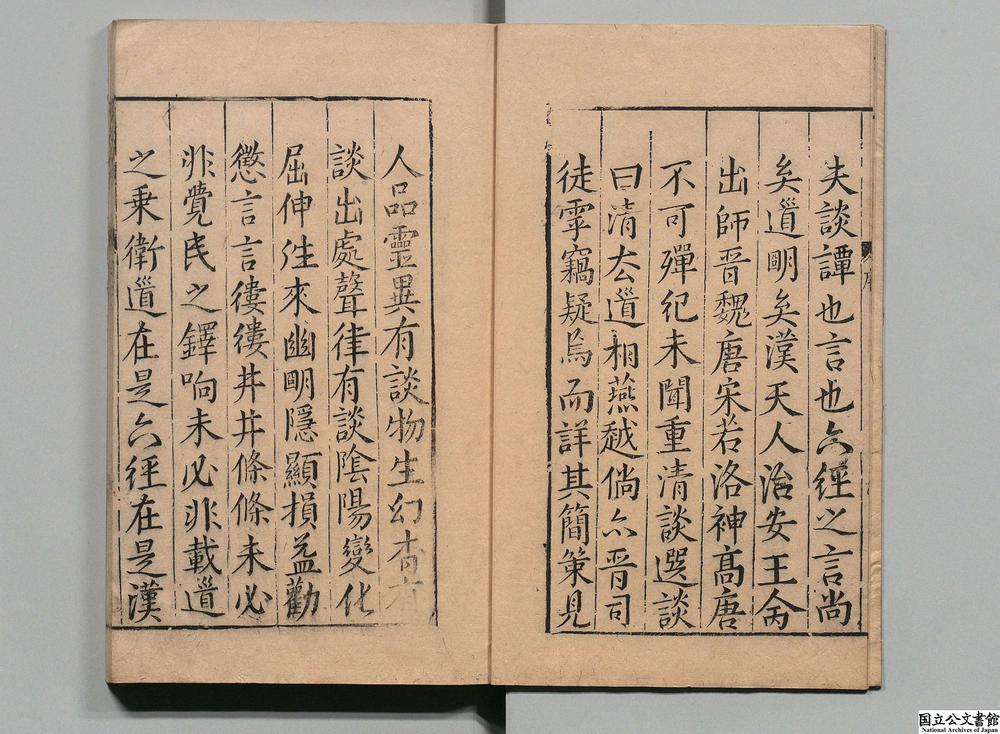 夫談譚也言也六經之言尚
矣道明矣漢天人治安王命
出師晋魏唐宋若洛神高唐
不可殫紀未聞重清談選談
曰清去道相燕越倘亦晋司
徒雩竊疑焉而詳其簡策見
人品靈異有談物生幻杳有
談出處聲律有談陰陽變化
屈伸徃來幽明隱顯損益勸
懲言言僂僂井井條條未必
非覺民之鐸响未必非載道
之乗衛道在是六經在是漢
序
国立公文書館
National Archives of Japan